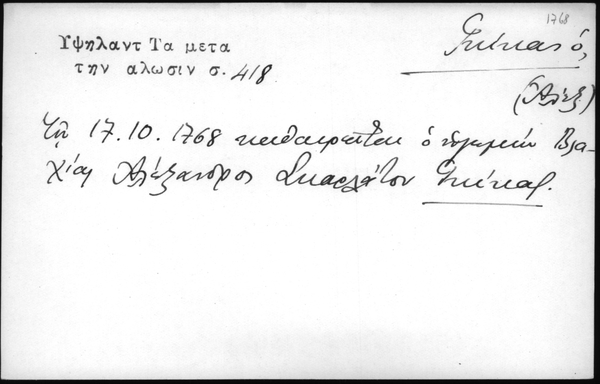 1768
Υψηλαντ Τα μετα
την αλωσιν σ. 418
Γκίκας ὁ,
(Ἀλέξ)
τῇ 17.10.1768 καθαιρεῖται ὁ ἡγεμὼν Βλα-
χίας Ἀλέξανδρος Σκαρλάτου Γκίκας.